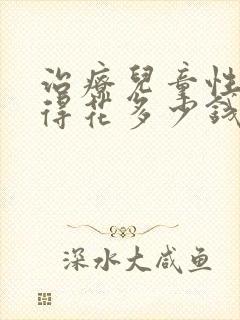 治療兒童性
得花多少錢
深水大咸鱼